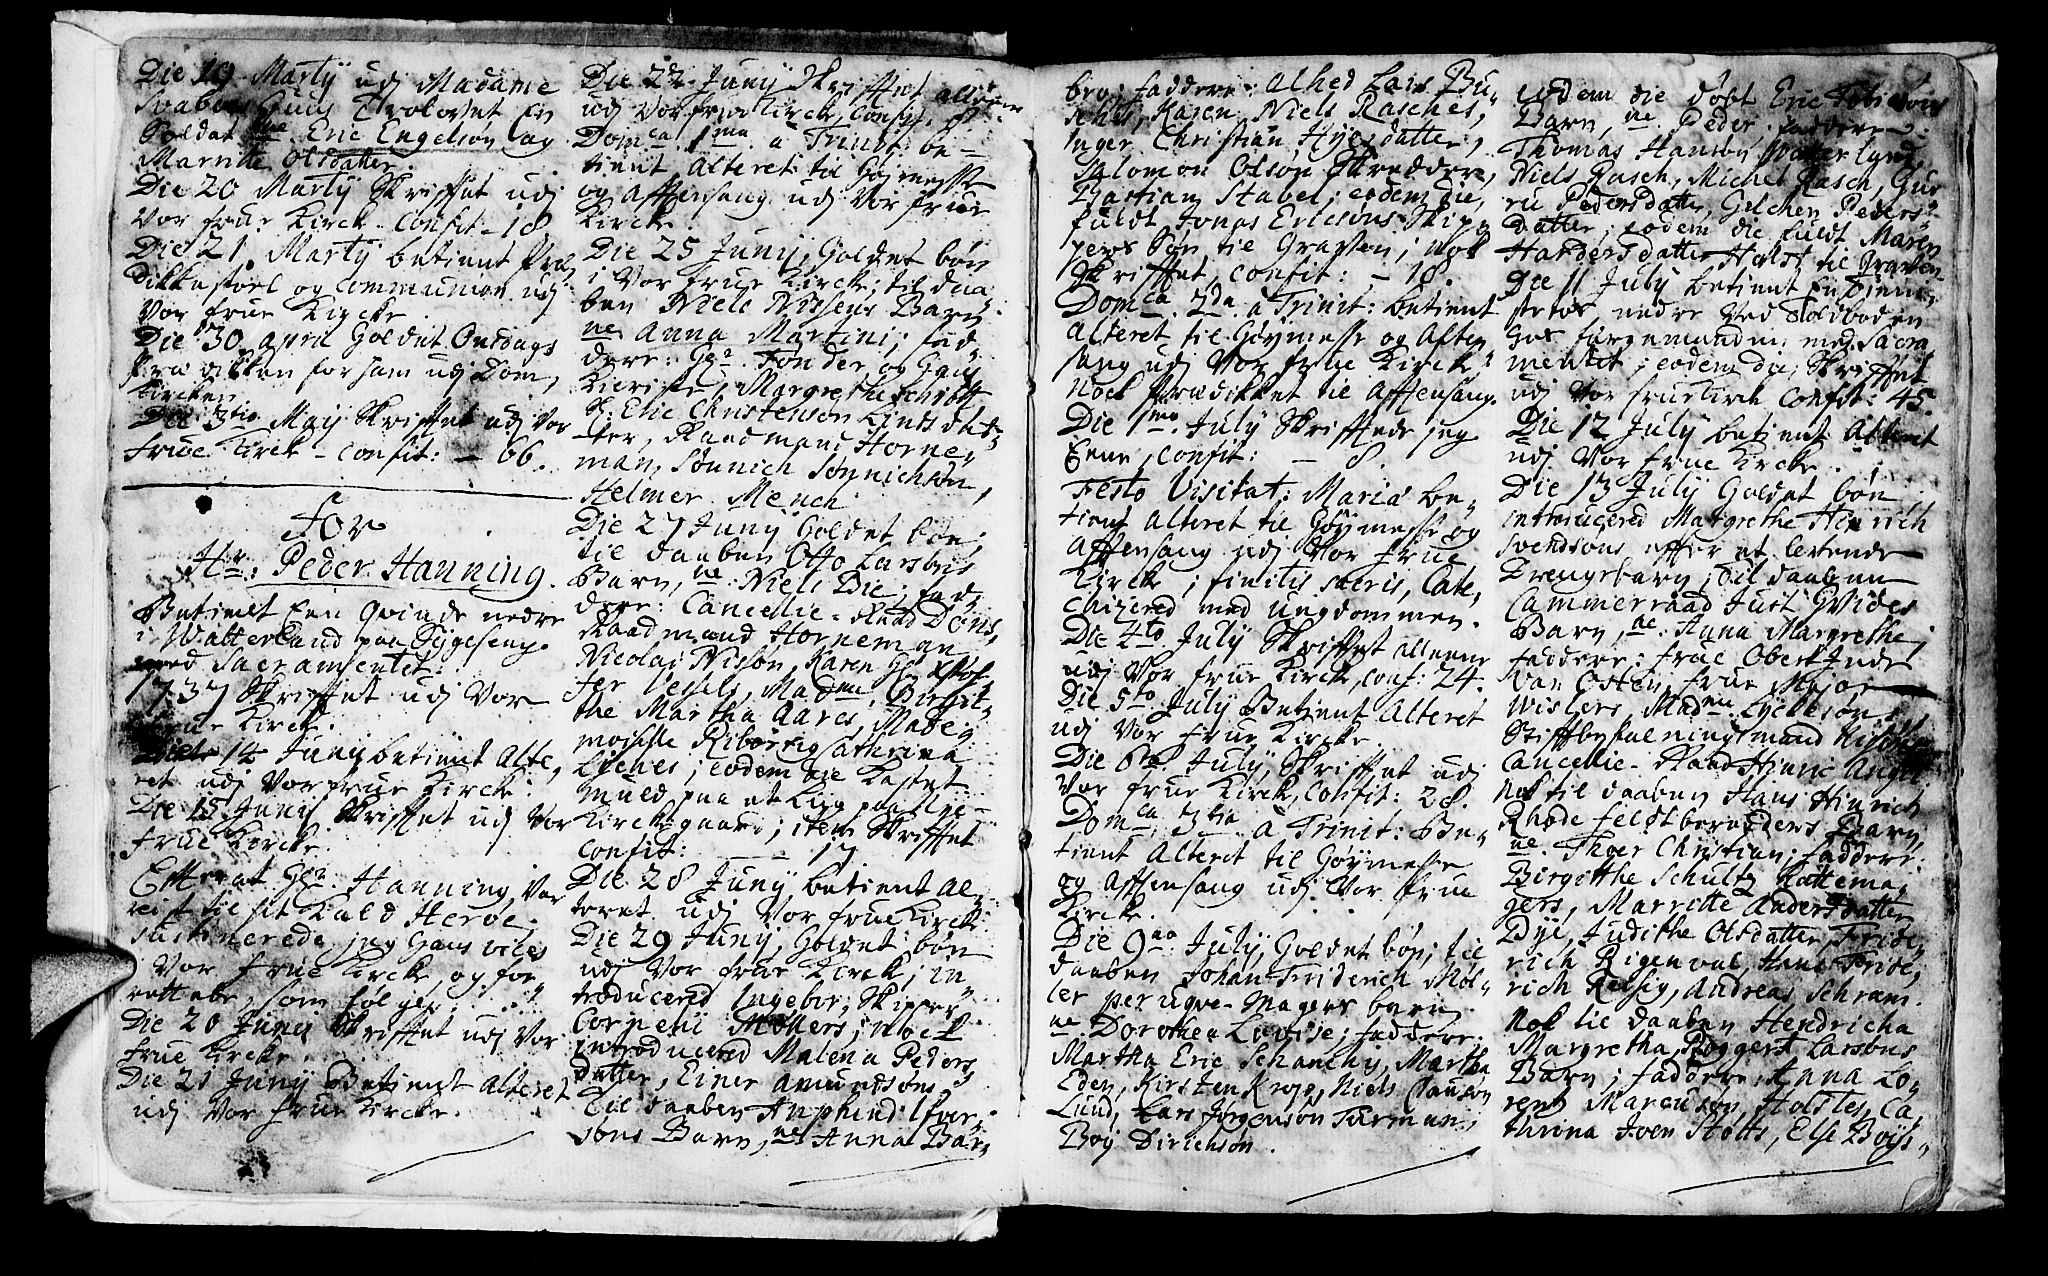 Die 19 Martij udj Madame
Svabers Huus Trolovet En
Soldat ne Eric Engelson og
Marrite Olsdatter
Die 20 Martij Skrifftet udj
Vor frue Kirck Confit - 18
Die 21. Martij betient Præ
dikkestoel og Communion udj
Vor frue Kircke
Die 30 april holdet Onsdags
Prædikken for ham udj Dom
Kircken
Die 3tio Maij Skrifftet udj Vor
Frue Kirck - confit: - 66.
For
Hr: Peder Hanning.
Betient Een qvinde nedre
i Watterland paa Sygeseng
med Sacramentet.
1737 Skrifftet udj Vor
Frue Kircke.
Die 14 Junij betient Alte,
ret udj Vor frue Kircke.
Die 15 Junij Skrifftet udj Vor
Frue Kircke.
Efter at Hr Hanning Var
reist til sit Kald Herøe,
succinerede jeg hans vices
Vor frue Kirck og for
rettede, som følger:
Die 20 Junij Skrifftet udj Vor
Frue Kircke.
Die 21 Junij Betient Alteret
udj Vor frue Kircke.
Die 22 Junij Skrifftet alleene
udj Vor frue Kirck, Confit.
Domca 1ma à Trinit: be-
tient Alteret til Høymesse
og Afftensang udj Vor frue
Kircke.
Die 25 Junij, holdet bøn
i Vor frue Kircke; til daa
ben Niels Nissens Barn
ne Anna Martini; fad
dere: Hr. Tønder, og Hans
Kieriste, Margrethe Schiøtt
S. Elie Christenson Lindsdat-
ter, Raadmand Horne,
man, Sønnich Sønnichsøn,
Helmer Mench
Die 27 Junij holdet bøn;
til daaben Otto Larsøns
Barn, ne. Niels Die; fad
dere: Cancellie-Raad Døns,
Raadmand Horneman,
Nicolaj Nissøn, Karen Hr
fer Vessels, Madme Birgit-
the Martha Aares, Made,
moiselle Riboring Cathrina
Lyches; eodem die Kastet
Muld paa et Liig paa Nye-
Kirckegaard; item Skrifftet
Confit: - 17
Die 28 Junij betient Al-
teret udj Vor frue Kirck
Die 29 Junij, holdet bøn
udj Vor frue Kirck; in
troducered Ingebor, Skipper
Cornelij Møllers; nock
introducered Malena Peders
datter, Einer Amundsøns,
Til daaben Amphind Ifvar-
søns Barn, ne Anna Bar,
bro; faddere: Alhed Lars Bu-
schts, Karen Niels Rasches,
Inger Christian Hyesdatter,
Salomon Olson Skreddere,
Bastian Stabel; eodem die
fuldt Jonas Ericsøns Skip-
pers Søn til Graffen; nok
Skrifftet, Confit: - 18.
Domca 2da à Trinit: betient
Alteret til Høymesse og Aften
sang udj Vor frue Kirck;
nock Prædikket til Afftensang.
Die 1mo July Skrifftede jeg
Eene, Confit: - 8.
Festo Visitat: Mariæ be-
tient Alteret til Høymesse og
Afftensang udj Vor frue
Kirck; finitis sacris, Cate,
chizered med Ungdommen.
Die 4to July Skrifftet alleene
udj Vor frue Kircke, Conf: 24.
Die 5to July Betient Alteret
udj Vor frue Kircke
Die 6to July, Skrifftet udj
Vor frue Kirck, Confit: 28.
Domca 3tia à Trinit: Be-
tient Alteret til Høymesse
og Afftensang udj Vor frue
Kircke.
Die 9no July, holdet bøn; til
daaben Johan Friderich Møl-
ler peruqve-magers barn
ne Dorothea Lovise; faddere:
Martha Eric Schanchy, Martha
Eden, Kirsten Krog, Niels Clauson
Lund, Lars Jørgensøn Furman,
Boy Dirichsøn.
eodem die døbt Eric Tobiesøns
Barn, ne Peder. faddere:
Thomas Hansøn Watterland,
Niels Rasch, Michel Rasch, Gu
ru Pedersdatter, Gitchen Peders-
datter; eodem die fuldt Maren
Handersdatter Holst til graven
Die 11 July betient En Tiene
stetøs nedre Ved Toldboden
hos færgemanden med Sacra
mentet; eodem die Skrifftet
udj Vor frue Kirck Confit: 45.
Die 12 July betient Alteret
udj Vor frue Kircke.
Die 13 July holdet bøn
introducered Margrethe Hinrich
Svendsøns effter et levende
Drengebarn; til daaben
Cammerraad Just Wides
Barn, ne: Anna Margrethe;
faddere: frue Oberst Juds
Van Osten, frue Major
Wislers, Madme Lyckesøn,
Stifftbefalningsmand
Cancellie-Raad Hinric
nok til daaben Hans Hinrich
Rhode feldtberederens Barn,
ne. Thoer Christian; faddere:
Birgitthe Schultz Hattema-
gers, Marritte Andersdatter
Bye, Judithe Olsdatter, Fride,
rich Rigenval, Hans Fride,
rich Reisig, Andreas Schram.
Nok til daaben Hendricha
Margretha, Roggert Larsøns
Barn; faddere: Anna Lo,
rents Marcuson, Holstes, Ca,
thrina Iven Stolts, Else Boys,